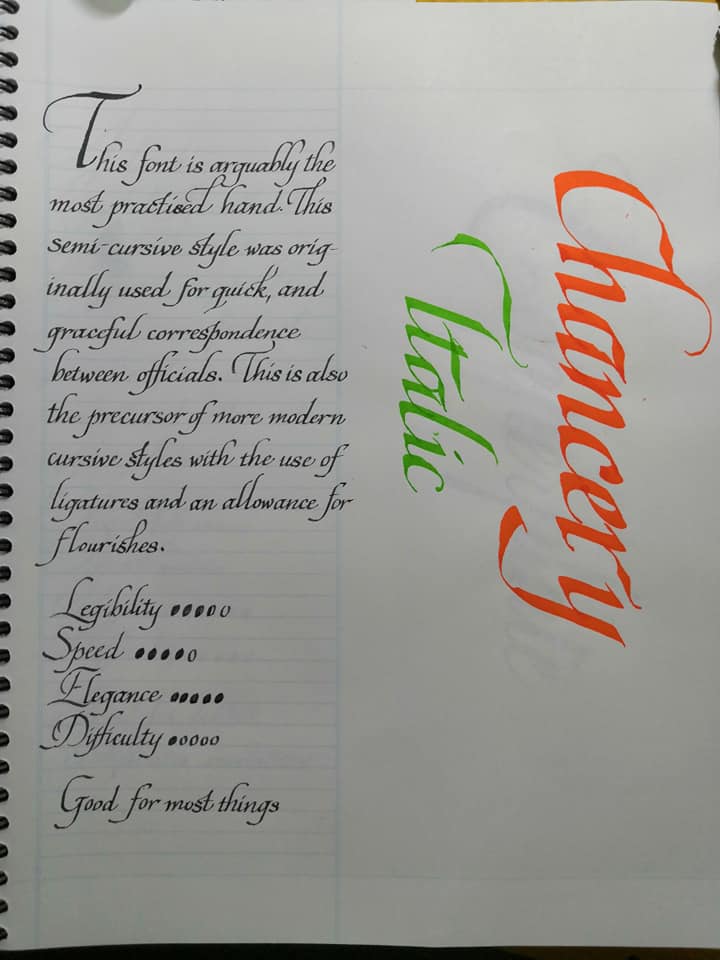 This font is arguably the
most practised hand. This
semi-cursive style was orig-
inally used for quick, and
graceful correspondence
between officials. This is also
the precursor of more modern
cursive styles with the use of
ligatures and an allowance for
flourishes.
Legibility ●●●●○
Speed ●●●●○
Elegance ●●●●●
Difficulty ●○○○○
Good for most things
Chancery
Italic